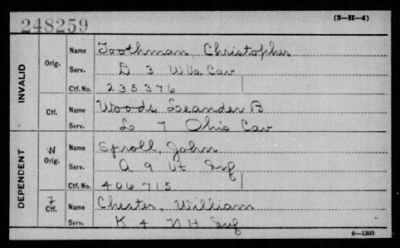 248259
(3-H-4)
INVALID
Orig. Name Toothman Christopher
Serv. D 3 W Va Cav
Ctf. No. 235376
Ctf. Name Woods Leander B
Serv. L 7 Ohio Cav
DEPENDENT
W Orig. Name Sproll, John
Serv. A 9 Vt Inf
Ctf. No. 406715
Ctf. Name Chester, William
Serv. K 4 N H Inf